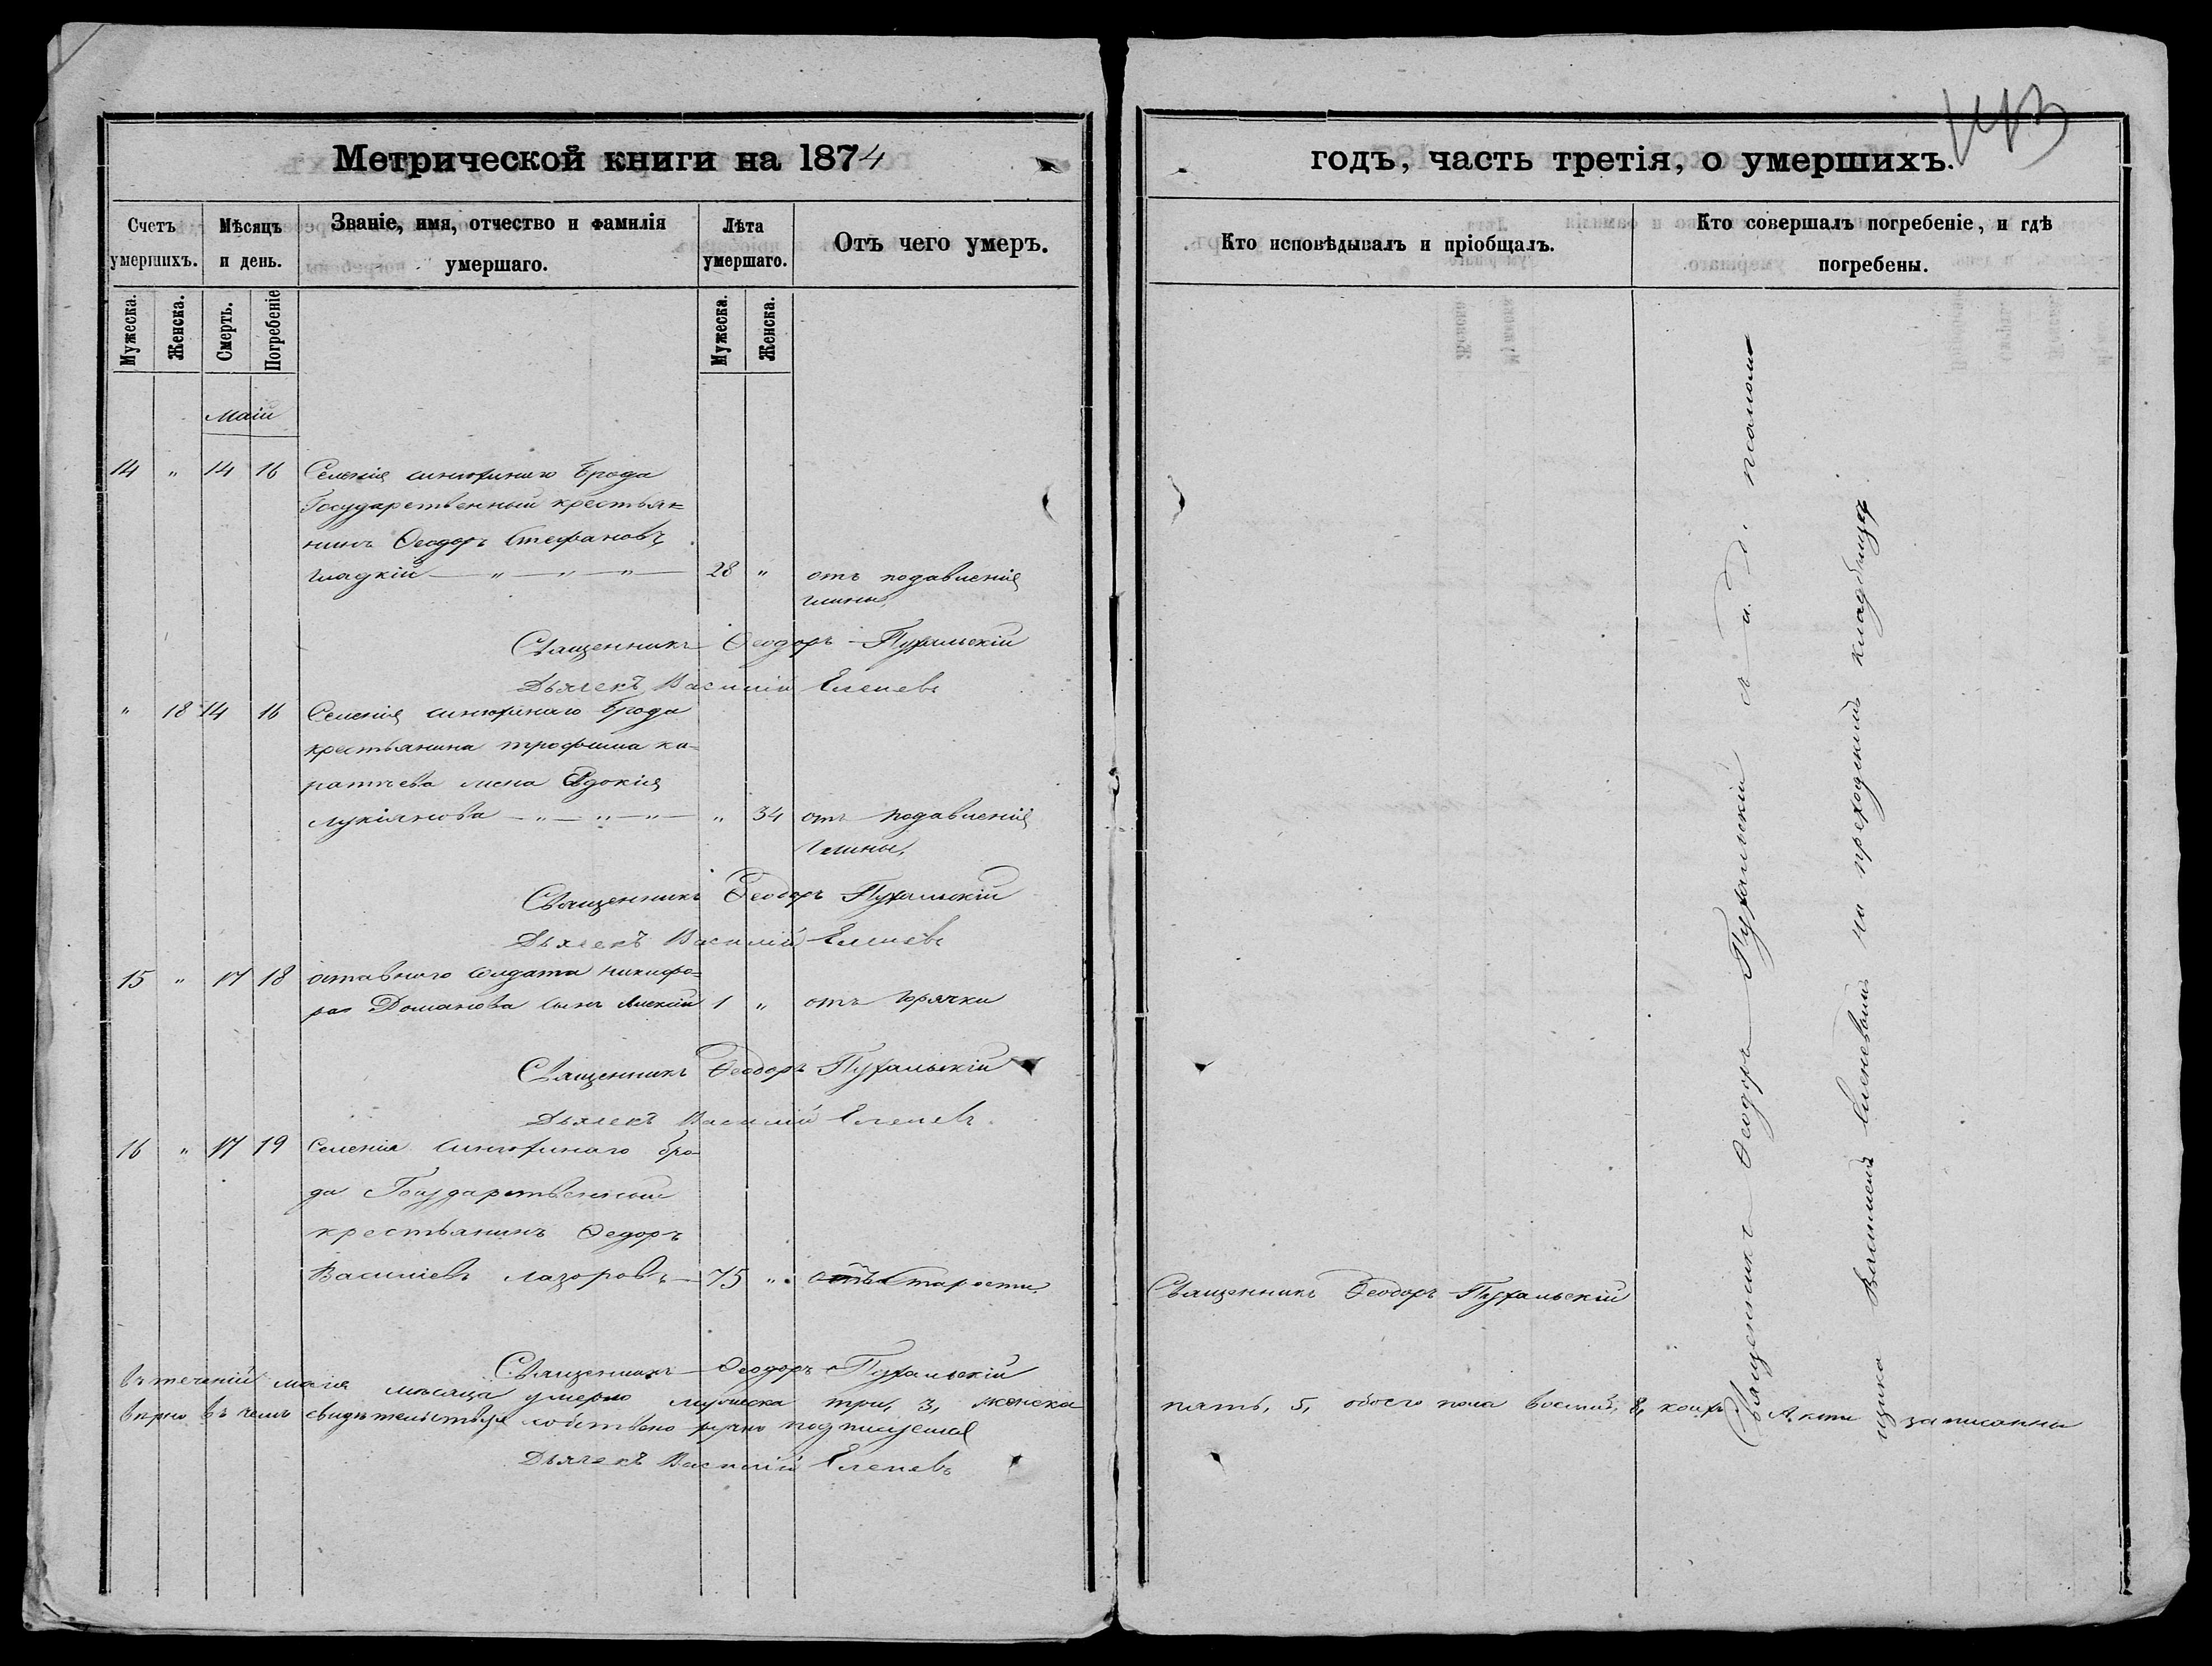 Метрической книги на 1874
годъ, часть третія, о умершихъ.
Счетъ умершихъ.
Мѣсяцъ и день.
Званіе, имя, отчество и фамилія умершаго.
Лѣта умершаго.
Отъ чего умеръ.
Кто исповѣдывалъ и пріобщалъ.
Кто совершалъ погребеніе, и гдѣ погребены.
Мужеска.
Женска.
Смерть.
Погребеніе
Мужеска.
Женска.
Маій
14 " 14 16 Селенія Синюхинаго Брода
Государственный крестья=
нинъ Ѳеодоръ Стефановъ
Гладкій — " — " — " — 28 " отъ подавленія
глины
Священникъ Ѳеодоръ Пухальскій
Дьячекъ Василій Еленевъ
" 18 14 16 Селенія Синюхинаго Брода
крестьянина Трофима Ка-
ратѣева жена Евдокія
Лукіянова — " — " — " — " 34 отъ подавленія
глины,
Священникъ Ѳеодоръ Пухальскій
Дьячекъ Василій Еленевъ
15 " 17 18 отставного солдата Никифо=
ра Доманова сынъ Алексій 1 " отъ горячки
Священникъ Ѳеодоръ Пухальскій
Дьячекъ Василій Еленевъ
16 " 17 19 Селенія Синюхинаго Бро-
да Государственный
крестьянинъ Ѳедоръ
Васильевъ Лазоровъ — 75 " отъ старости
Священникъ Ѳеодоръ Пухальскій
Священникъ Ѳеодоръ Пухальскій
въ теченіи мая мѣсяца умерло мужеска три, 3, женска пять, 5, обоего пола восемь, 8, коихъ Акти записанны
вѣрно въ чемъ свидѣтельствуя собственно ручно подписуемся
Дьячекъ Василій Еленевъ
Священникъ Ѳеодоръ Пухальскій съ и. д. псалом
щика Василіемъ Еленевымъ на приходскомъ кладбищѣ